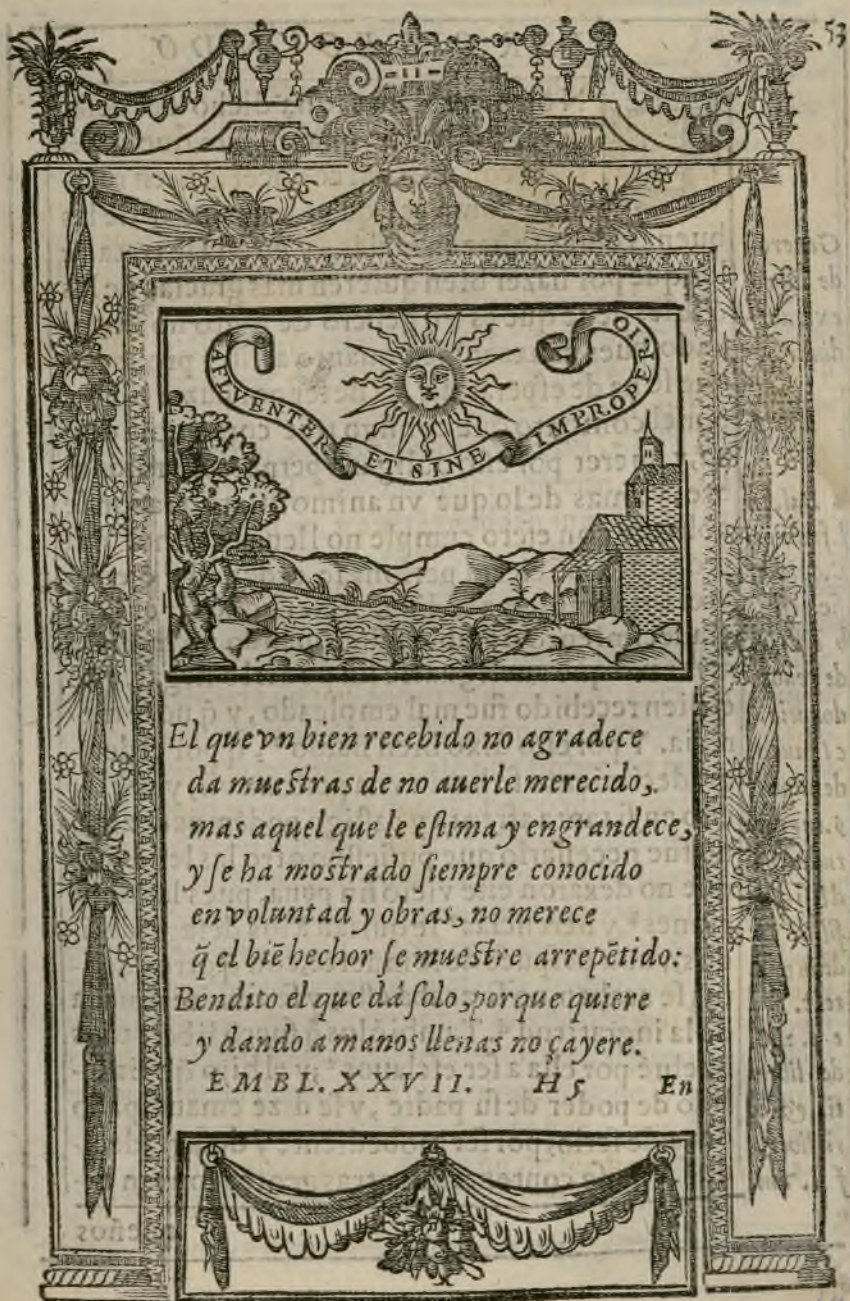 53
AFLVENTER ET SINE IMPROPERIO
El que vn bien recebido no agradece
da muestras de no auerle merecido,
mas aquel que le estima y engrandece,
y se ha mostrado siempre conocido
en voluntad y obras, no merece
q̃ el biẽ hechor se muestre arrepẽtido:
Bendito el que dá solo, porque quiere
y dando a manos llenas no çayere.
EMBL. XXVII. H 5 En